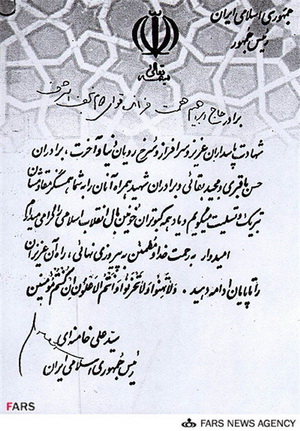 جمهوری اسلامی ایران
رئیس جمهور
بسمه تعالی
برادر حاج ابراهیم همت فرمانده قوای
شهادت پاسداران عزیز و سرافراز و سرخ رویان دنیا و آخرت، برادران
حسن باقری و مجید بقائی و برادران شهید همراه آنان را به شما و همسنگر مقاومشان
تبریک و تسلیت میگویم و یاد همه کبوتران خونین بال انقلاب اسلامی را گرامی میدارم
امیدوار به رحمت خدا و مطمئن به پیروزی نهائی، راه آن عزیزان
را تا پایان ادامه دهید. ولا تهنوا ولا تحزنوا وانتم الاعلون ان کنتم مؤمنین
سید علی خامنه‌ای
رئیس جمهوری اسلامی ایران
FARS
FARS NEWS AGENCY